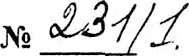 № 231/1.